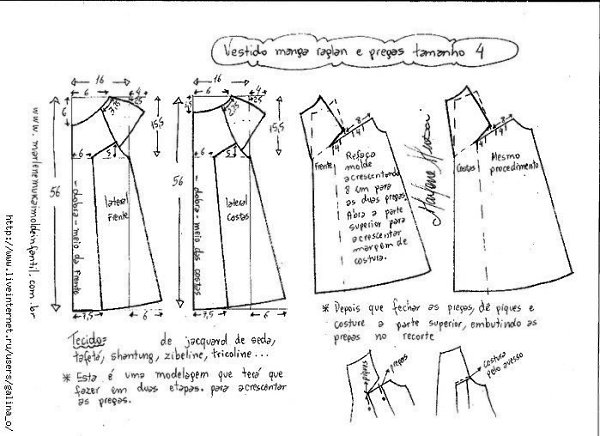 Vestido manga raglan e pregas tamanho 4
16
6
4
2,5
3,75
6
15,5
6
5
56
lateral
frente
dobra - meio da frente
7,5
6
16
6
4
2,5
15,5
6
5
56
lateral
costas
dobra - meio das costas
7,5
6
8
4
4
Frente
Refaça
molde
acrescentando
8 cm para
as duas pregas.
Abra a parte
superior para
acrescentar
margem de
costura.
8
4
4
Costas
Mesmo
procedimento
Tecido:
de jacquard de seda,
tafetá, shantung, zibeline, tricoline...
* Esta é uma modelagem que terá que
fazer em duas etapas. para acrescentar
as pregas.
* Depois que fechar as pregas, dê piques e
costure a parte superior, embutindo as
pregas no recorte
piques
pregas
costura
pelo avesso
www.marlenemukaimoldeinfantil.com.br
http://www.liveinternet.ru/users/galina_o/